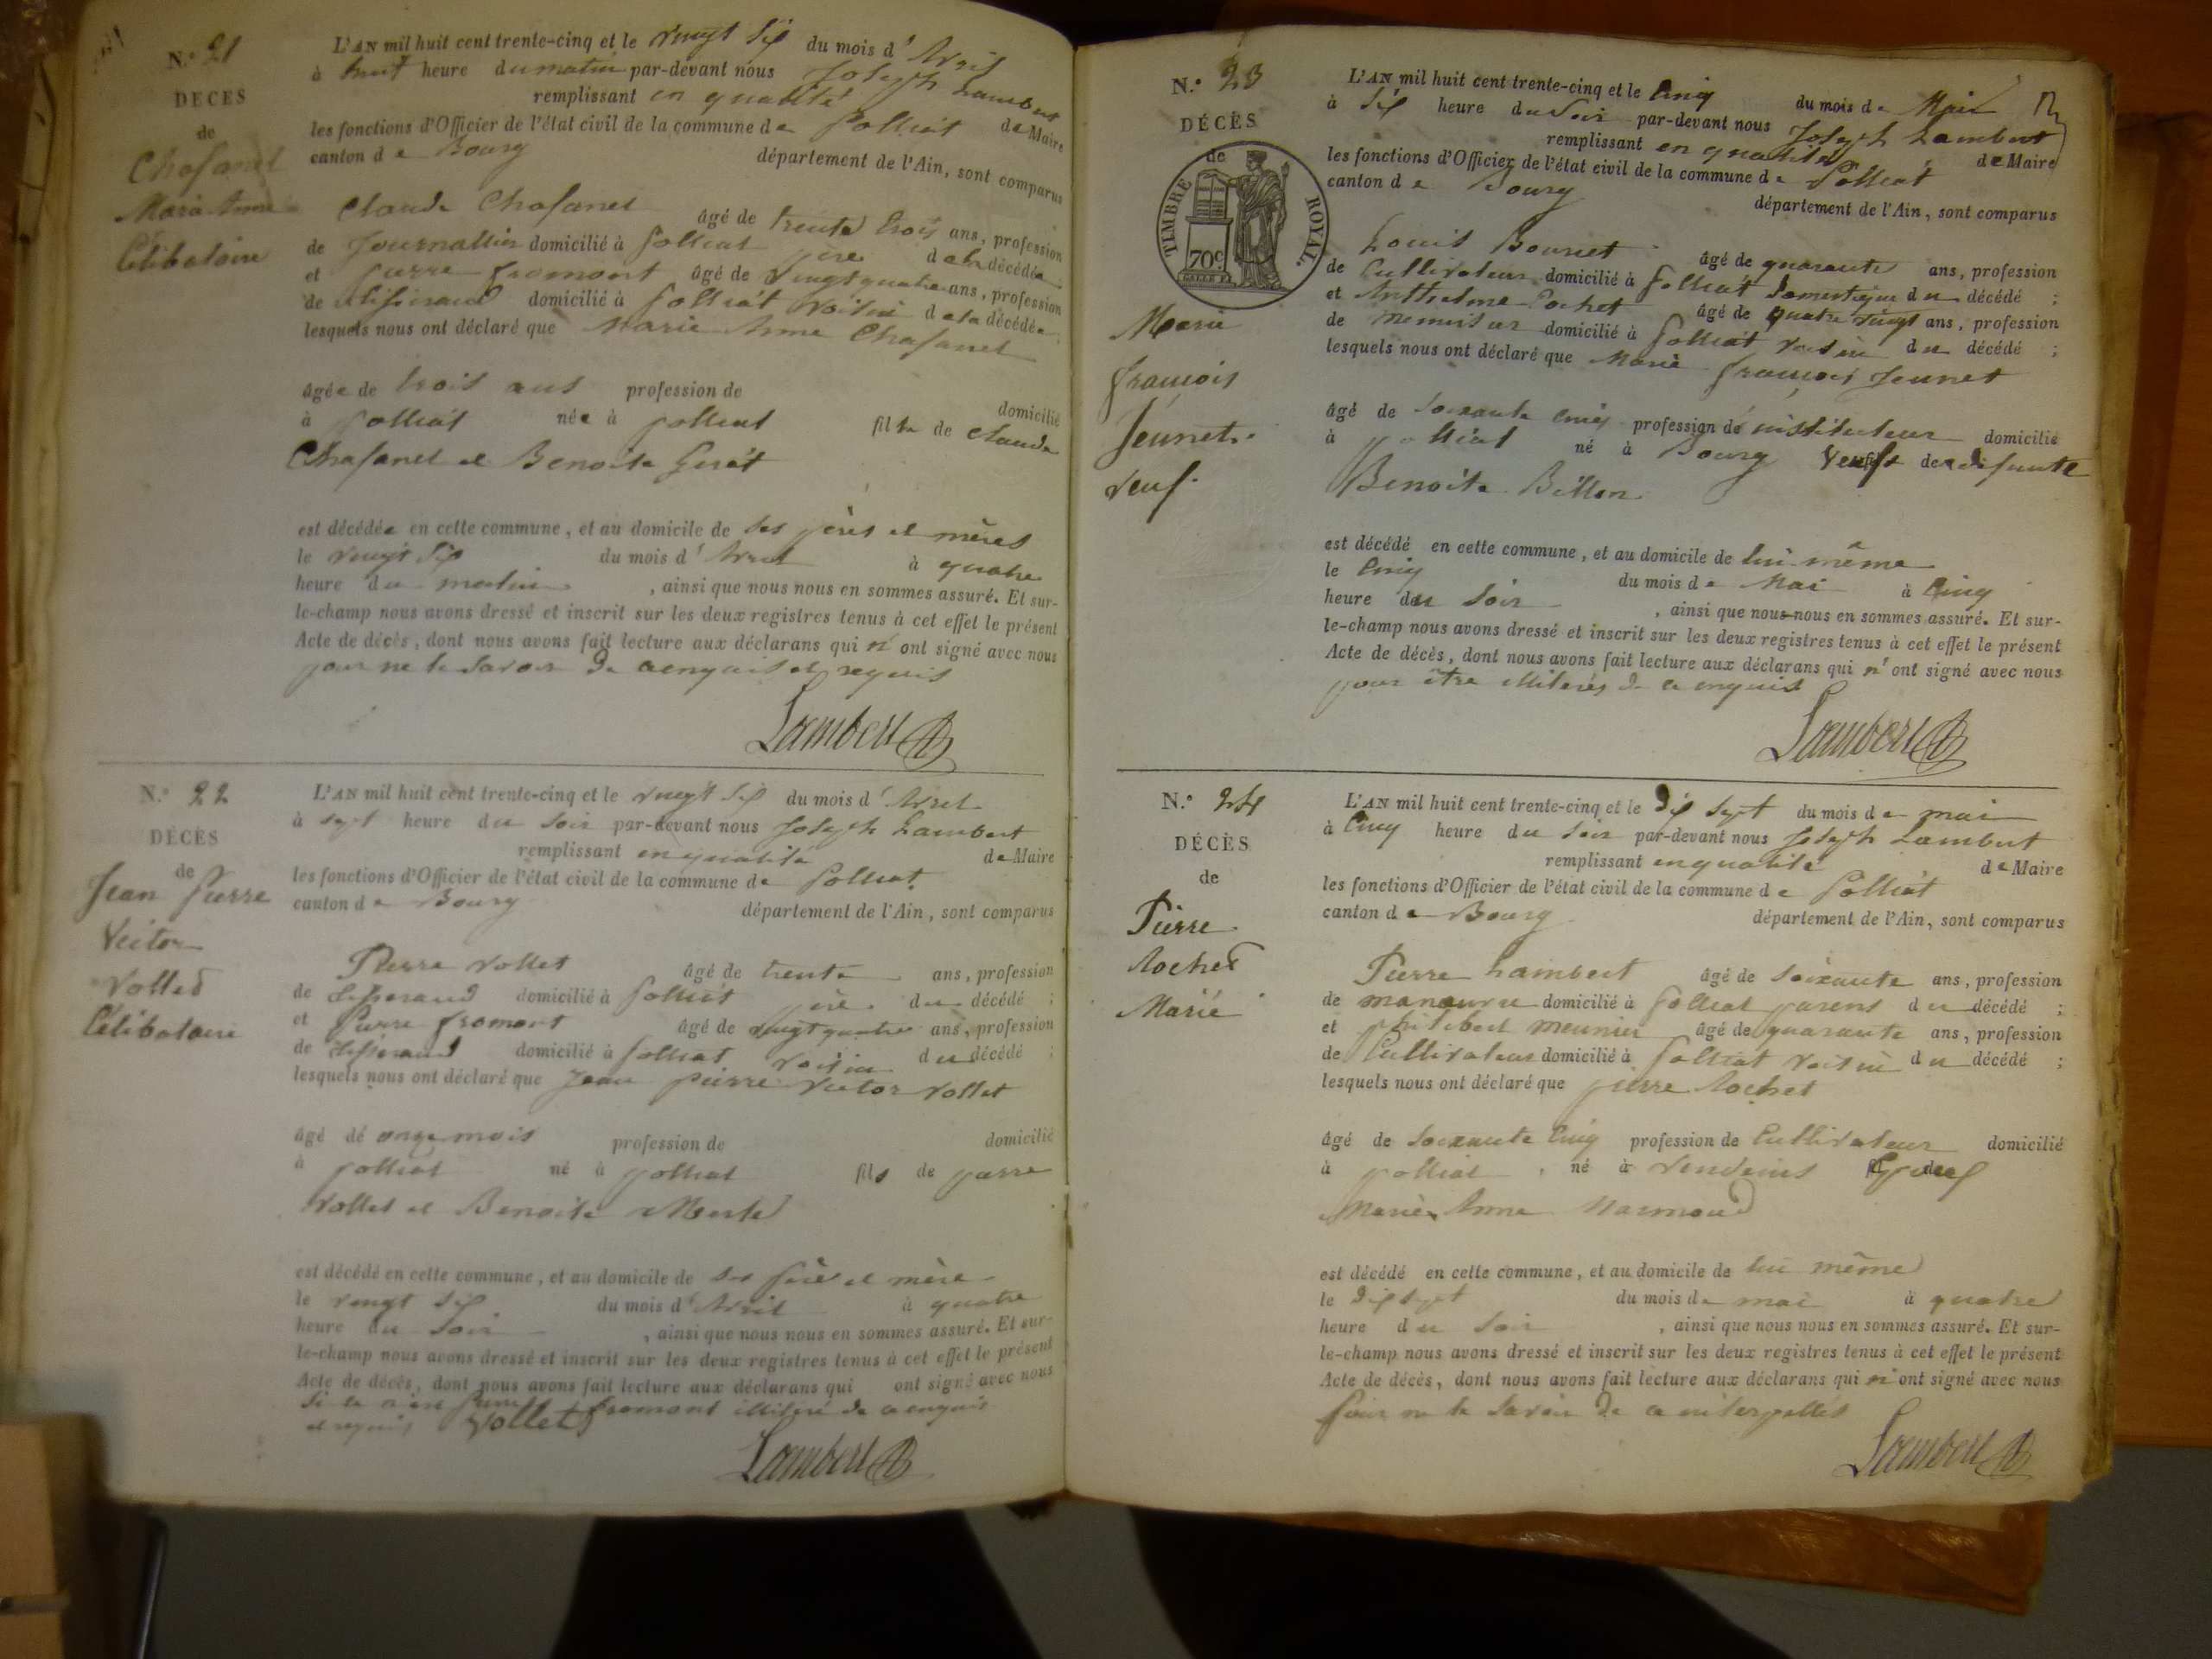 N.° 21
DÉCÈS
de
Chafanel
Marie Anne
Célibataire
L'AN mil huit cent trente-cinq et le vingt six du mois d' Avril
à huit heure du matin par-devant nous Joseph Lambert
remplissant en qualité de Maire
les fonctions d'Officier de l'état civil de la commune de Polliat
canton de Bourg département de l'Ain, sont comparus
Claude Chafanel âgé de trente trois ans, profession
de Journallier domicilié à Polliat père de la décédée
et pierre fromont âgé de vingt quatre ans, profession
de tisserand domicilié à Polliat voisin de la décédée
lesquels nous ont déclaré que Marie Anne Chafanel
âgée de trois ans profession de domicilié
à polliat née à polliat fille de Claude
Chafanel et Benoite
est décédée en cette commune, et au domicile de ses pères et mères
le vingt six du mois d' Avril à quatre
heure du matin, ainsi que nous nous en sommes assuré. Et sur-
le-champ nous avons dressé et inscrit sur les deux registres tenus à cet effet le présent
Acte de décès, dont nous avons fait lecture aux déclarans qui n' ont signé avec nous
pour ne le savoir de ce enquis et requis
Lambert
N.° 22
DÉCÈS
de
Jean Pierre
Victor
Vollet
Célibataire
L'AN mil huit cent trente-cinq et le vingt six du mois d' Avril
à sept heure du soir par-devant nous Joseph Lambert
remplissant en qualité de Maire
les fonctions d'Officier de l'état civil de la commune de Polliat
canton de Bourg département de l'Ain, sont comparus
Pierre Vollet âgé de trente ans, profession
de tisserand domicilié à Polliat père du décédé ;
et Pierre fromont âgé de vingt quatre ans, profession
de tisserand domicilié à Polliat voisin du décédé ;
lesquels nous ont déclaré que Jean pierre Victor Vollet
âgé de onze mois profession de domicilié
à polliat né à polliat fils de pierre
Vollet et Benoite Merle
est décédé en cette commune, et au domicile de ses père et mère
le vingt six du mois d' Avril à quatre
heure du soir, ainsi que nous nous en sommes assuré. Et sur-
le-champ nous avons dressé et inscrit sur les deux registres tenus à cet effet le présent
Acte de décès, dont nous avons fait lecture aux déclarans qui ont signé avec nous
si ce n'est fromont illitéré de ce enquis
et requis Vollet
Lambert
N.° 23
DÉCÈS
de
TIMBRE ROYAL.
70c
Marie
françois
Jeunet
veuf
L'AN mil huit cent trente-cinq et le Cinq du mois de Mai
à six heure du soir par-devant nous Joseph Lambert
remplissant en qualité de Maire
les fonctions d'Officier de l'état civil de la commune de Polliat
canton de Bourg département de l'Ain, sont comparus
Louis âgé de quarante ans, profession
de Cultivateur domicilié à Polliat domestique du décédé ;
et Anthelme Pochet âgé de quatre vingt ans, profession
de menuisier domicilié à Polliat voisin du décédé ;
lesquels nous ont déclaré que Marie françois Jeunet
âgé de soixante cinq profession de instituteur domicilié
à polliat né à Bourg Veuf de défunte
Benoite Billon
est décédé en cette commune, et au domicile de lui même
le Cinq du mois de Mai à Cinq
heure du soir, ainsi que nous nous en sommes assuré. Et sur-
le-champ nous avons dressé et inscrit sur les deux registres tenus à cet effet le présent
Acte de décès, dont nous avons fait lecture aux déclarans qui n' ont signé avec nous
pour être illiterés de ce enquis
Lambert
N.° 24
DÉCÈS
de
Pierre
Rochet
Marié
L'AN mil huit cent trente-cinq et le Dix sept du mois de mai
à Cinq heure du soir par-devant nous Joseph Lambert
remplissant en qualité de Maire
les fonctions d'Officier de l'état civil de la commune de Polliat
canton de Bourg département de l'Ain, sont comparus
Pierre Lambert âgé de soixante ans, profession
de manœuvre domicilié à Polliat parent du décédé ;
et philibert meunier âgé de quarante ans, profession
de Cultivateur domicilié à Polliat voisin du décédé ;
lesquels nous ont déclaré que pierre Rochet
âgé de soixante Cinq profession de Cultivateur domicilié
à polliat, né à
Marie Anne
est décédé en cette commune, et au domicile de lui même
le Dix sept du mois de mai à quatre
heure du soir, ainsi que nous nous en sommes assuré. Et sur-
le-champ nous avons dressé et inscrit sur les deux registres tenus à cet effet le présent
Acte de décès, dont nous avons fait lecture aux déclarans qui n' ont signé avec nous
pour ne le savoir de ce interpellés
Lambert